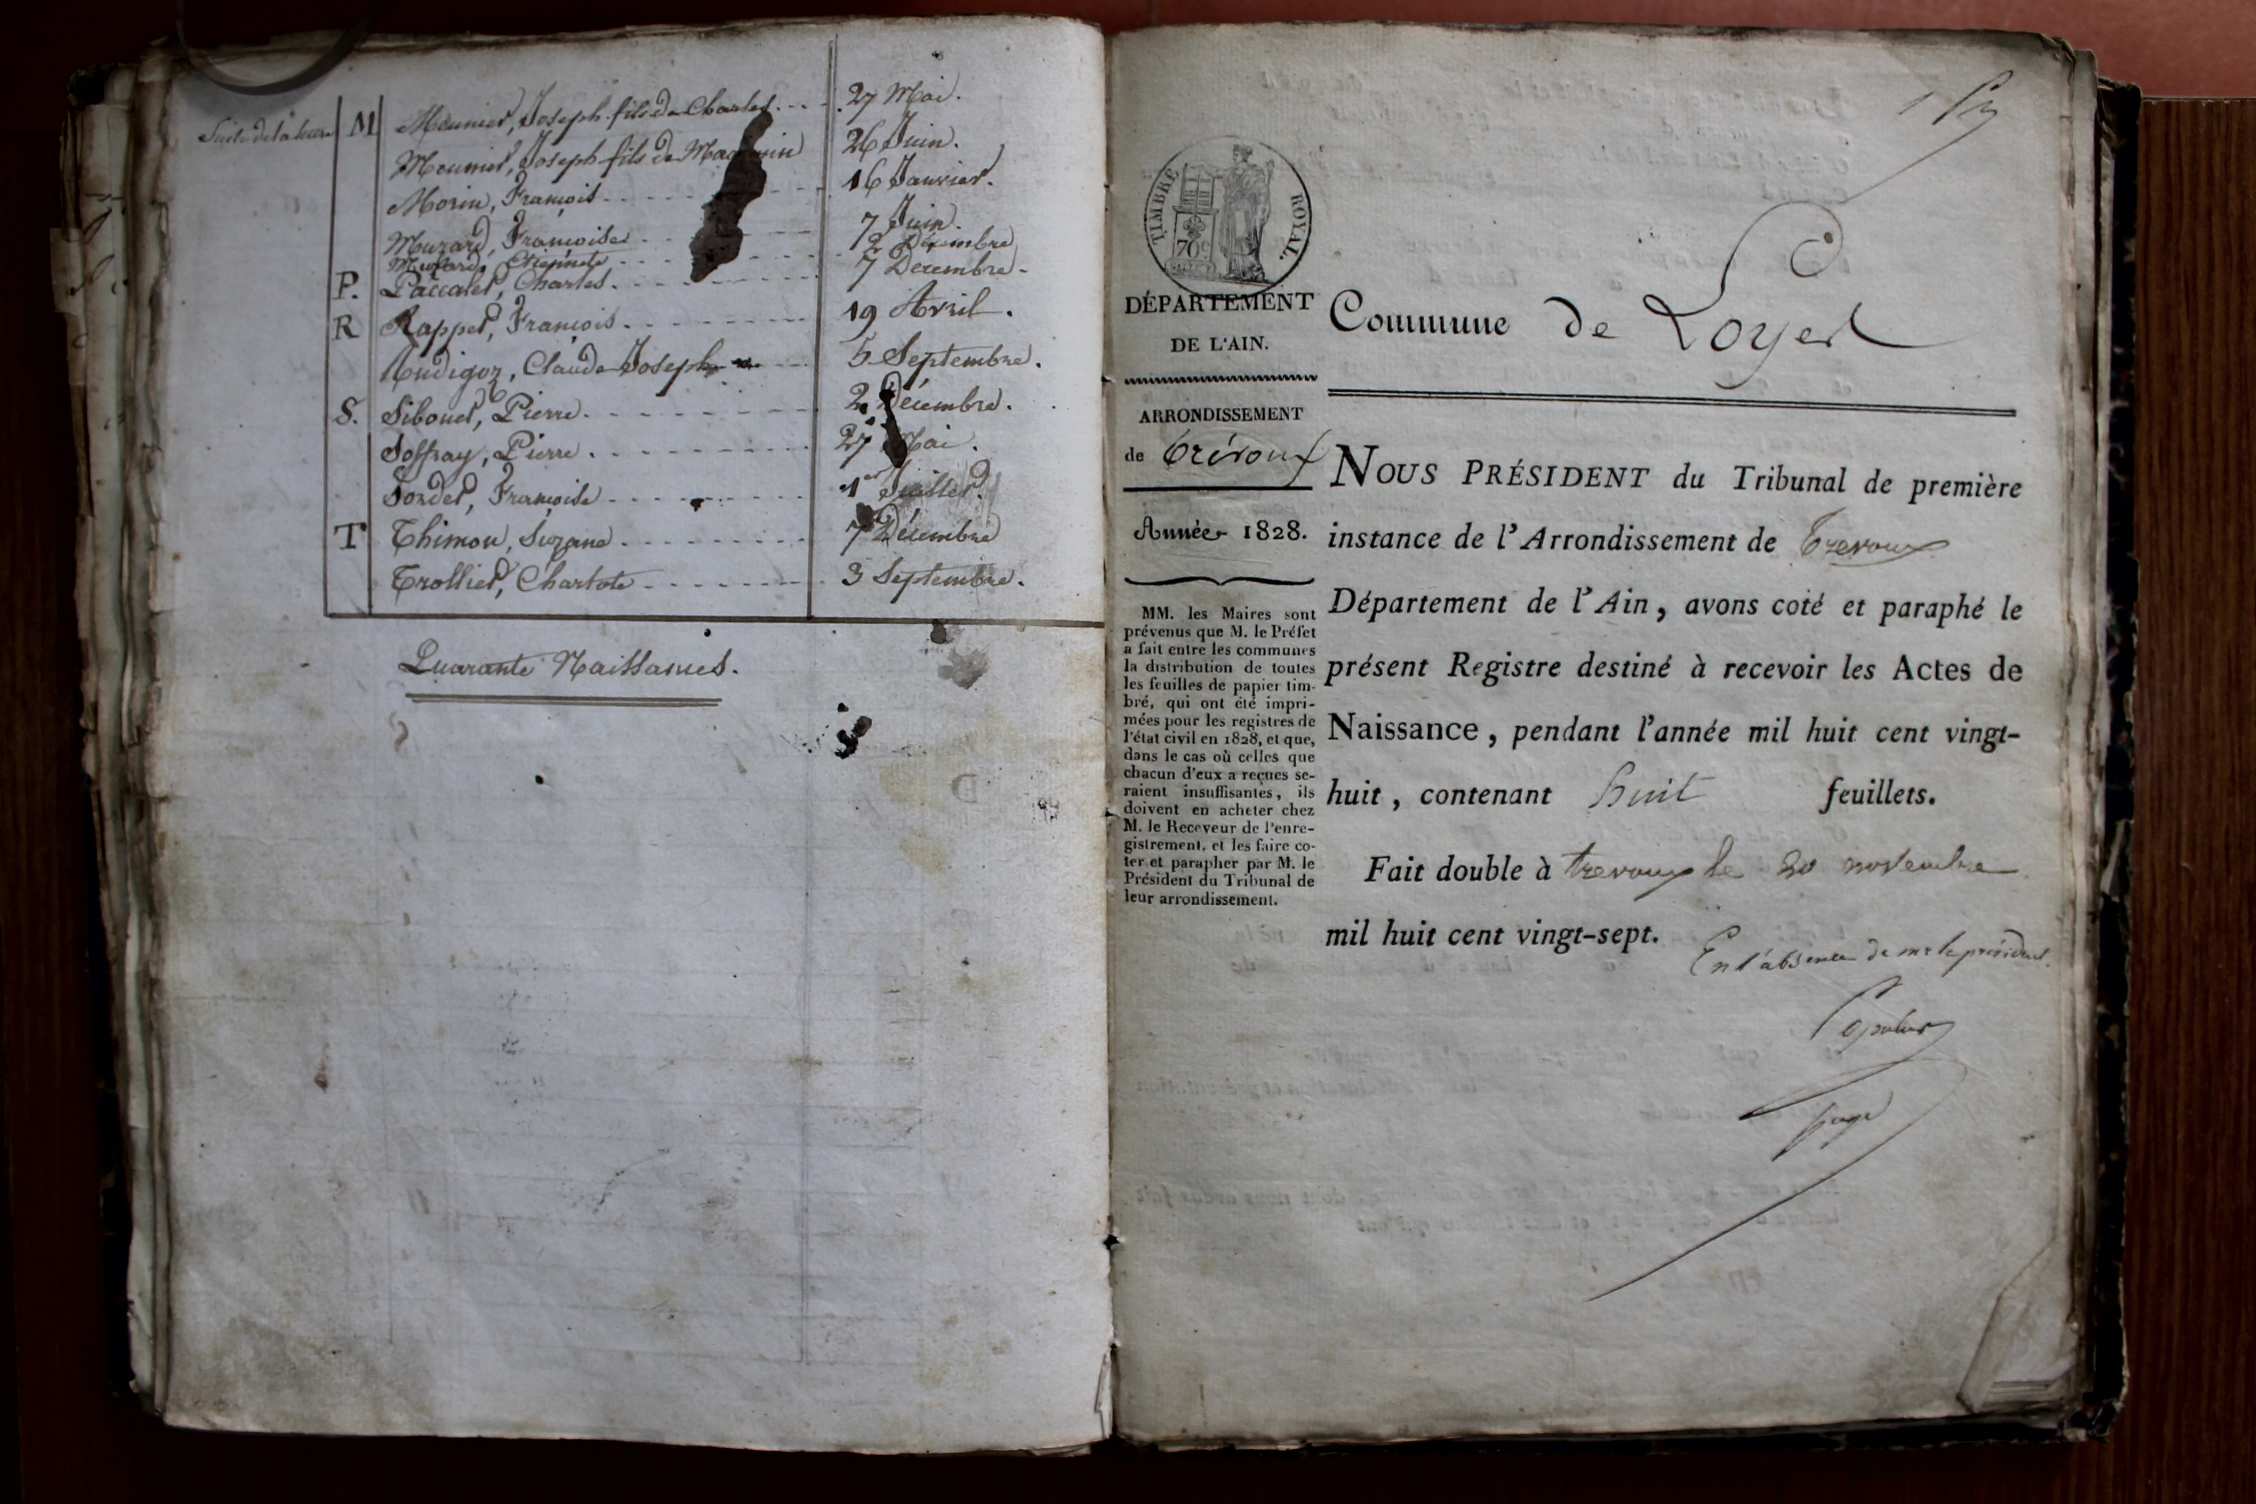 Suite de la lettre M Meunier, Joseph fils de Charles 27 Mai.
Meunier, Joseph fils de 26 Juin.
Morin, François 16 Janvier.
Muzard, Françoise 7 Juin.
Muzard, 2 Décembre
P. Paccalet, Charles 7 Décembre
R Rappet, François 19 Avril.
Rudigoz, Claude Joseph 5 Septembre.
S. Sibouet, Pierre 2 Décembre.
Soffray, Pierre 27 Mai.
Sordet, Françoise 1er Juillet.
T Thimon, Suzane 7 Décembre
Trollier, Charlote 3 Septembre.
Quarante Naissances.
1er
TIMBRE ROYAL.
70c
DÉPARTEMENT
DE L'AIN.
ARRONDISSEMENT
de Trévoux
Année 1828.
MM. les Maires sont
prévenus que M. le Préfet
a fait entre les communes
la distribution de toutes
les feuilles de papier tim-
bré, qui ont été impri-
mées pour les registres de
l'état civil en 1828, et que,
dans le cas où celles que
chacun d'eux a reçues se-
raient insuffisantes, ils
doivent en acheter chez
M. le Receveur de l'enre-
gistrement, et les faire co-
ter et parapher par M. le
Président du Tribunal de
leur arrondissement.
Commune de Loyes
NOUS PRÉSIDENT du Tribunal de première
instance de l'Arrondissement de Trevoux
Département de l'Ain, avons coté et paraphé le
présent Registre destiné à recevoir les Actes de
Naissance, pendant l'année mil huit cent vingt-
huit, contenant huit feuillets.
Fait double à trevoux le 20 novembre
mil huit cent vingt-sept.
En l'absence de mr le président.
juge